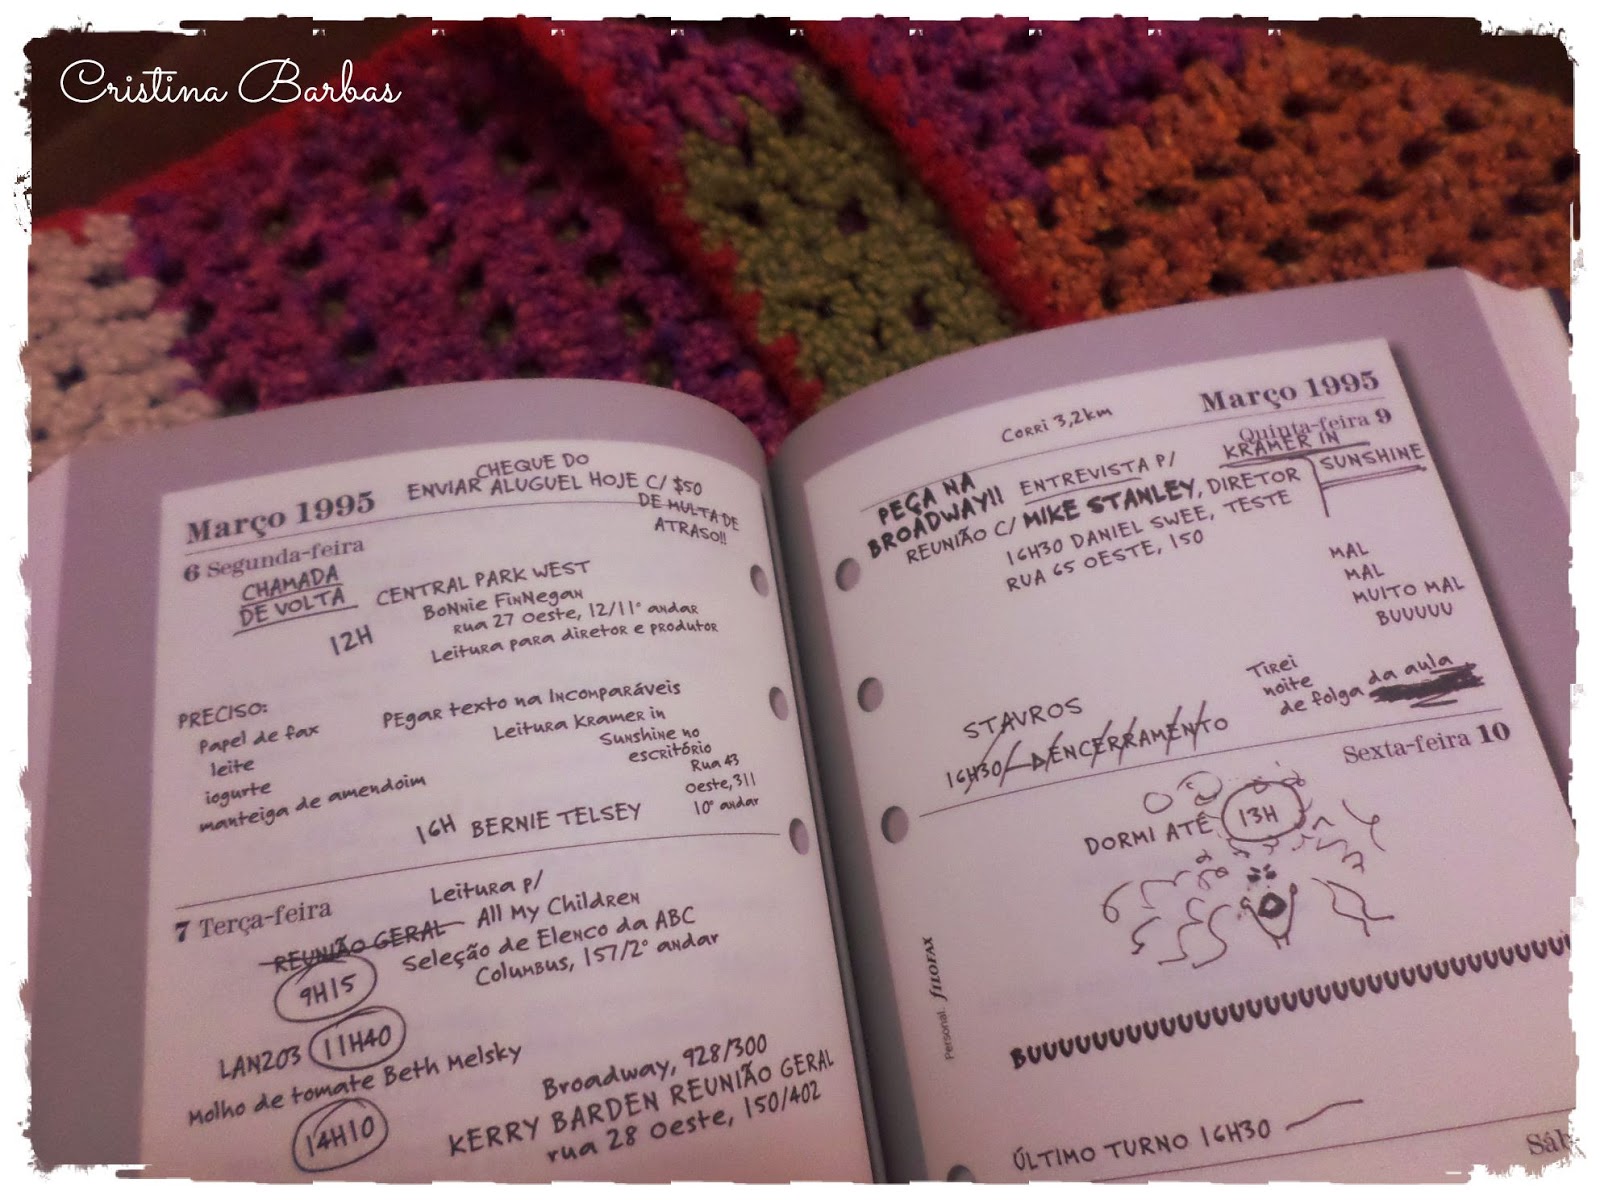 Cristina Barbas
CHEQUE DO
ENVIAR ALUGUEL HOJE C/ $50
DE MULTA DE
ATRASO!!
Março 1995
6 Segunda-feira
CHAMADA
DE VOLTA
12H
CENTRAL PARK WEST
BONNIE FINNEGAN
RUA 27 OESTE, 12/11º ANDAR
LEITURA PARA DIRETOR E PRODUTOR
PRECISO:
Papel de fax
leite
iogurte
manteiga de amendoim
PEgar texto na Incomparáveis
Leitura Kramer in
Sunshine no
escritório
Rua 43
Oeste, 311
10º andar
16H BERNIE TELSEY
7 Terça-feira
Leitura p/
REUNIÃO GERAL All My Children
9H15
Seleção de Elenco da ABC
Columbus, 157/2º andar
LAN203 11H40
Molho de tomate Beth Melsky
14H10
Broadway, 928/300
KERRY BARDEN REUNIÃO GERAL
rua 28 Oeste, 150/402
CORRI 3,2km
Março 1995
Quinta-feira 9
PEÇA NA
BROADWAY!!
ENTREVISTA P/
KRAMER IN
SUNSHINE
REUNIÃO C/ MIKE STANLEY, DIRETOR
16H30 DANIEL SWEE, TESTE
RUA 65 OESTE, 150
MAL
MAL
MUITO MAL
BUUUUU
STAVROS
16H30 ENCERRAMENTO
Tirei
noite
de folga da aula
Sexta-feira 10
DORMI ATÉ 13H
Personal. filofax
BUUUUUUUUUUUUUUUUUUUUUUUUUUUUUU
ÚLTIMO TURNO 16H30
Sáb